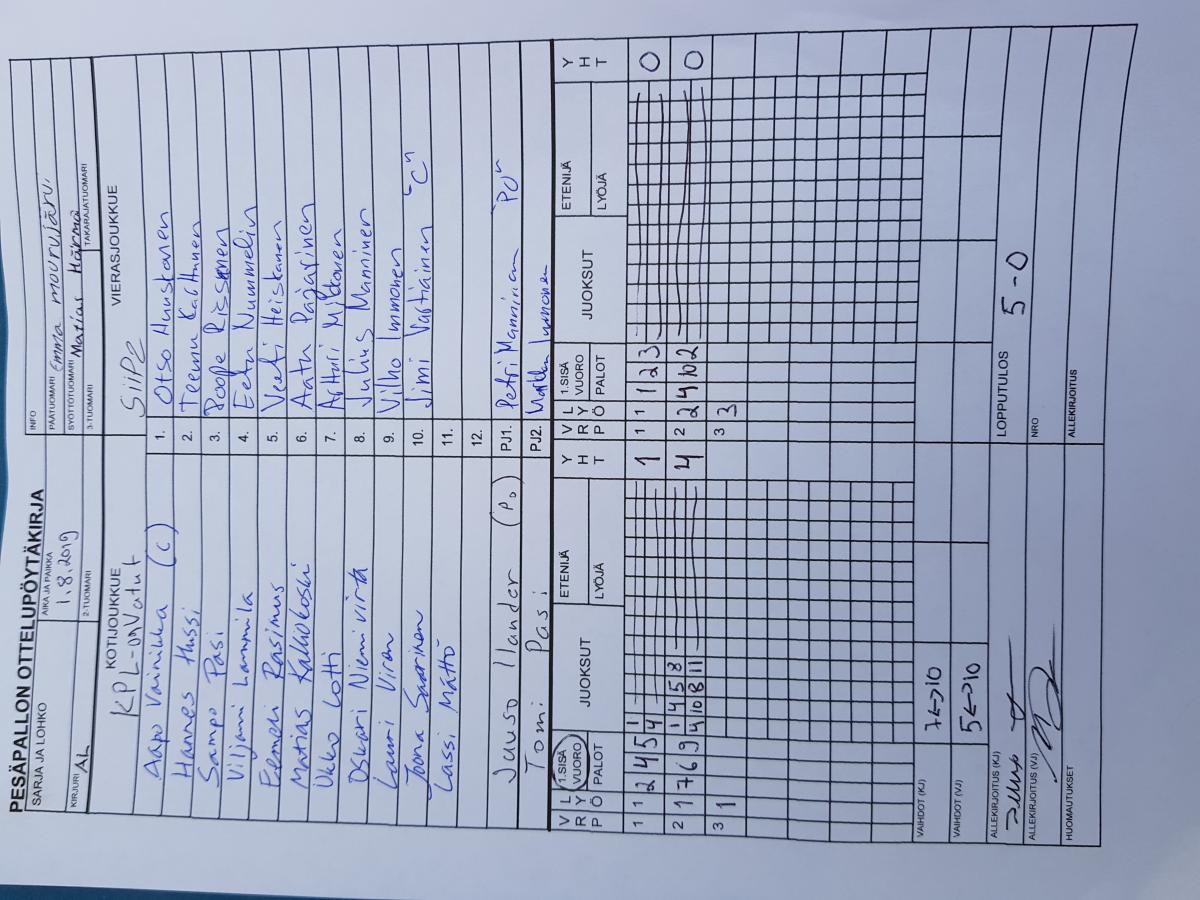 PESÄPALLON OTTELUPÖYTÄKIRJA
SARJA JA LOHKO
AIKA JA PAIKKA
1.8.2019
INFO
PÄÄTUOMARI Emma mourujärv.
KIRJURI AL
2-TUOMARI
SYÖTTÖTUOMARI Matias Härmä
3-TUOMARI
TAKARAJATUOMARI
KOTIJOUKKUE
KPL-onvatut
VIERASJOUKKUE
SiiPe
Aapo Vainikka (C) 1. Otso Huuskonen
Hannes Hussi 2. Teemu Karhunen
Sampo Pasi 3. Roope Rissanen
Viljami Lammila 4. Eetu Nummelin
Eemeli Rasimus 5. Veeti Heiskanen
Matias Kalliokoski 6. Aatu Pajarinen
Ukko Lotti 7. Artturi Mykkänen
Oskari Niemivirta 8. Julius Manninen
Lauri Viran 9. Vilho Immonen
Joona Saarinen 10. Jimi Vartiainen "C"
Lassi Mättö 11.
12.
Juuso Ilander (P.) PJ1. Petri Manninen "PO"
Tomi Pasi PJ2. Markku Immonen
V R P L Y Ö 1.SISÄ VUORO PALOT JUOKSUT ETENIJÄ LYÖJÄ Y H T V R P L Y Ö 1.SISÄ VUORO PALOT JUOKSUT ETENIJÄ LYÖJÄ Y H T
1 1 2 4 5 1 4 1 1 1 1 2 3 0
2 1 7 6 9 1 4 5 8 4 10 8 11 4 2 2 4 10 2 0
3 1 3 3
VAIHDOT (KJ) 7<->10
VAIHDOT (VJ) 5<->10
ALLEKIRJOITUS (KJ)
LOPPUTULOS 5-0
ALLEKIRJOITUS (VJ)
NRO
HUOMAUTUKSET
ALLEKIRJOITUS